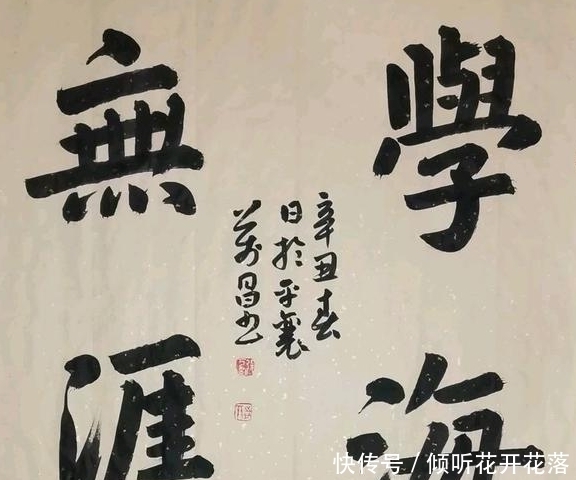 學海
無涯
辛丑春
日於平襄
萬昌书
快传号 / 倾听花开花落